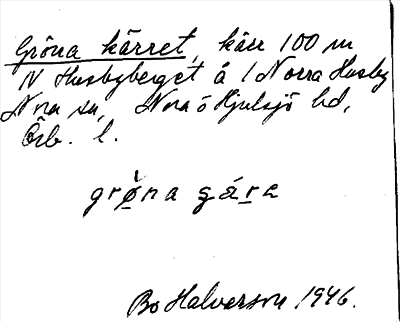 Gröna kärret, kärr 100 m
N Husbyberget å 1 Norra Husby
Nora sn, Nora o Hjulsjö hd,
Örb. l.
grø̀na
Bo Halvarson 1946.